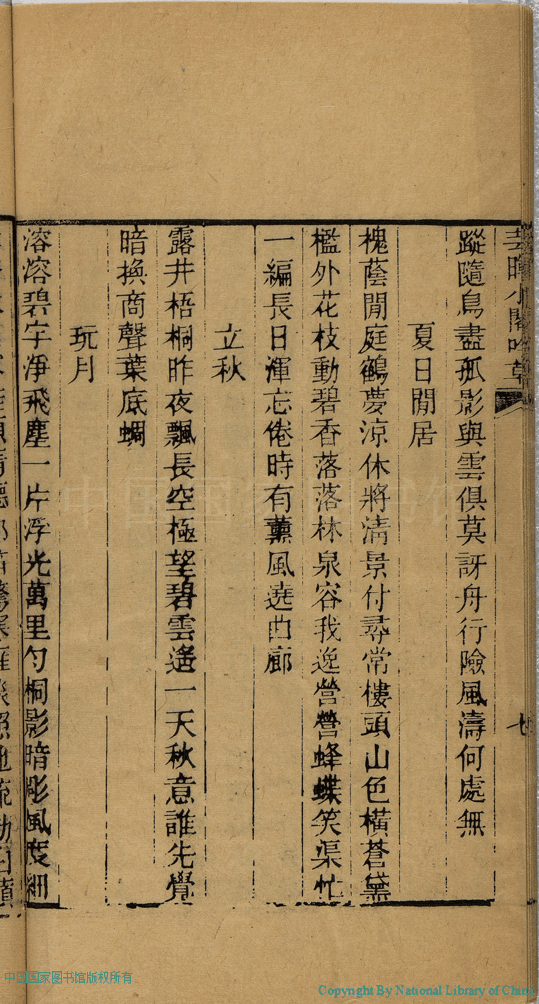 芸暉小閣吟草
七
蹤隨鳥盡孤影與雲俱莫訝舟行險風濤何處無
夏日閒居
槐蔭閒庭鶴夢涼休將淸景付尋常樓頭山色橫蒼黛
檻外花枝動碧香落落林泉容我逸營營蜂蝶笑渠忙
一編長日渾忘倦時有薰風遶曲廊
立秋
露井梧桐昨夜飄長空極望碧雲遙一天秋意誰先覺
暗換商聲葉底蜩
玩月
溶溶碧宇淨飛塵一片浮光萬里勻桐影暗彫風度細
中国国家图书馆版权所有
Copyright By National Library of China